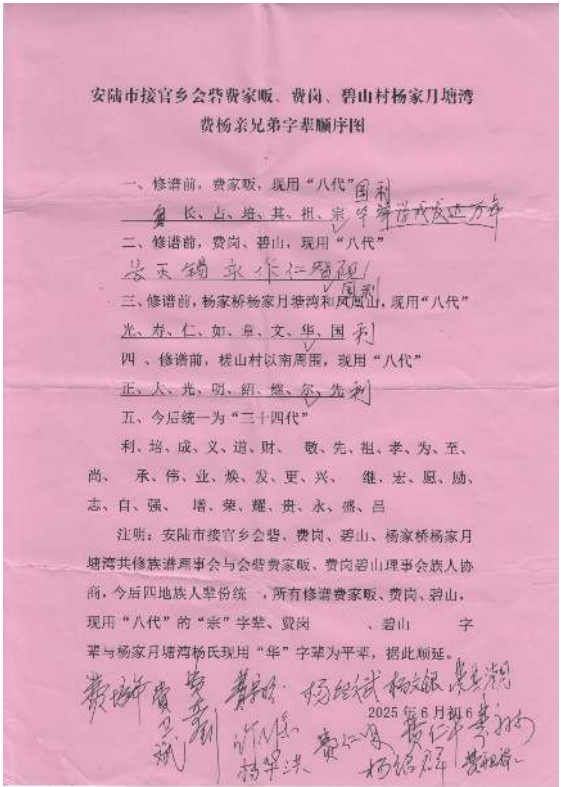 安陆市接官乡会砦费家畈、费岗、碧山村杨家月塘湾
费杨亲兄弟字辈顺序图
一、修谱前，费家畈，现用“八代”国利
长、占、培、其、祖、宗、华
二、修谱前，费岗、碧山，现用“八代”
天锡永作仁
国利
三、修谱前，杨家桥杨家月塘湾和凤凰山，现用“八代”
光、寿、仁、如、章、文、华、国 利
四 、修谱前，槎山村以南周围，现用“八代”
正、大、光、明、绍、继、尔、先 利
五、今后统一为“三十四代”
利、培、成、义、道、财、 敬、先、祖、孝、为、至、
尚、 承、伟、业、焕、发、更、兴、 继、宏、愿、励、
志、自、强、 增、荣、耀、贵、永、盛、吕
注明：安陆市接官乡会砦、费岗、碧山、杨家桥杨家月
塘湾共修族谱理事会与会砦费家畈、费岗碧山理事会族人协
商，今后四地族人辈份统一，所有修谱费家畈、费岗、碧山，
现用“八代”的“宗”字辈、费岗 、碧山 字
辈与杨家月塘湾杨氏现用“华”字辈为平辈，据此顺延。
杨文银
2025 年 6 月初 6
费仁
杨绍群